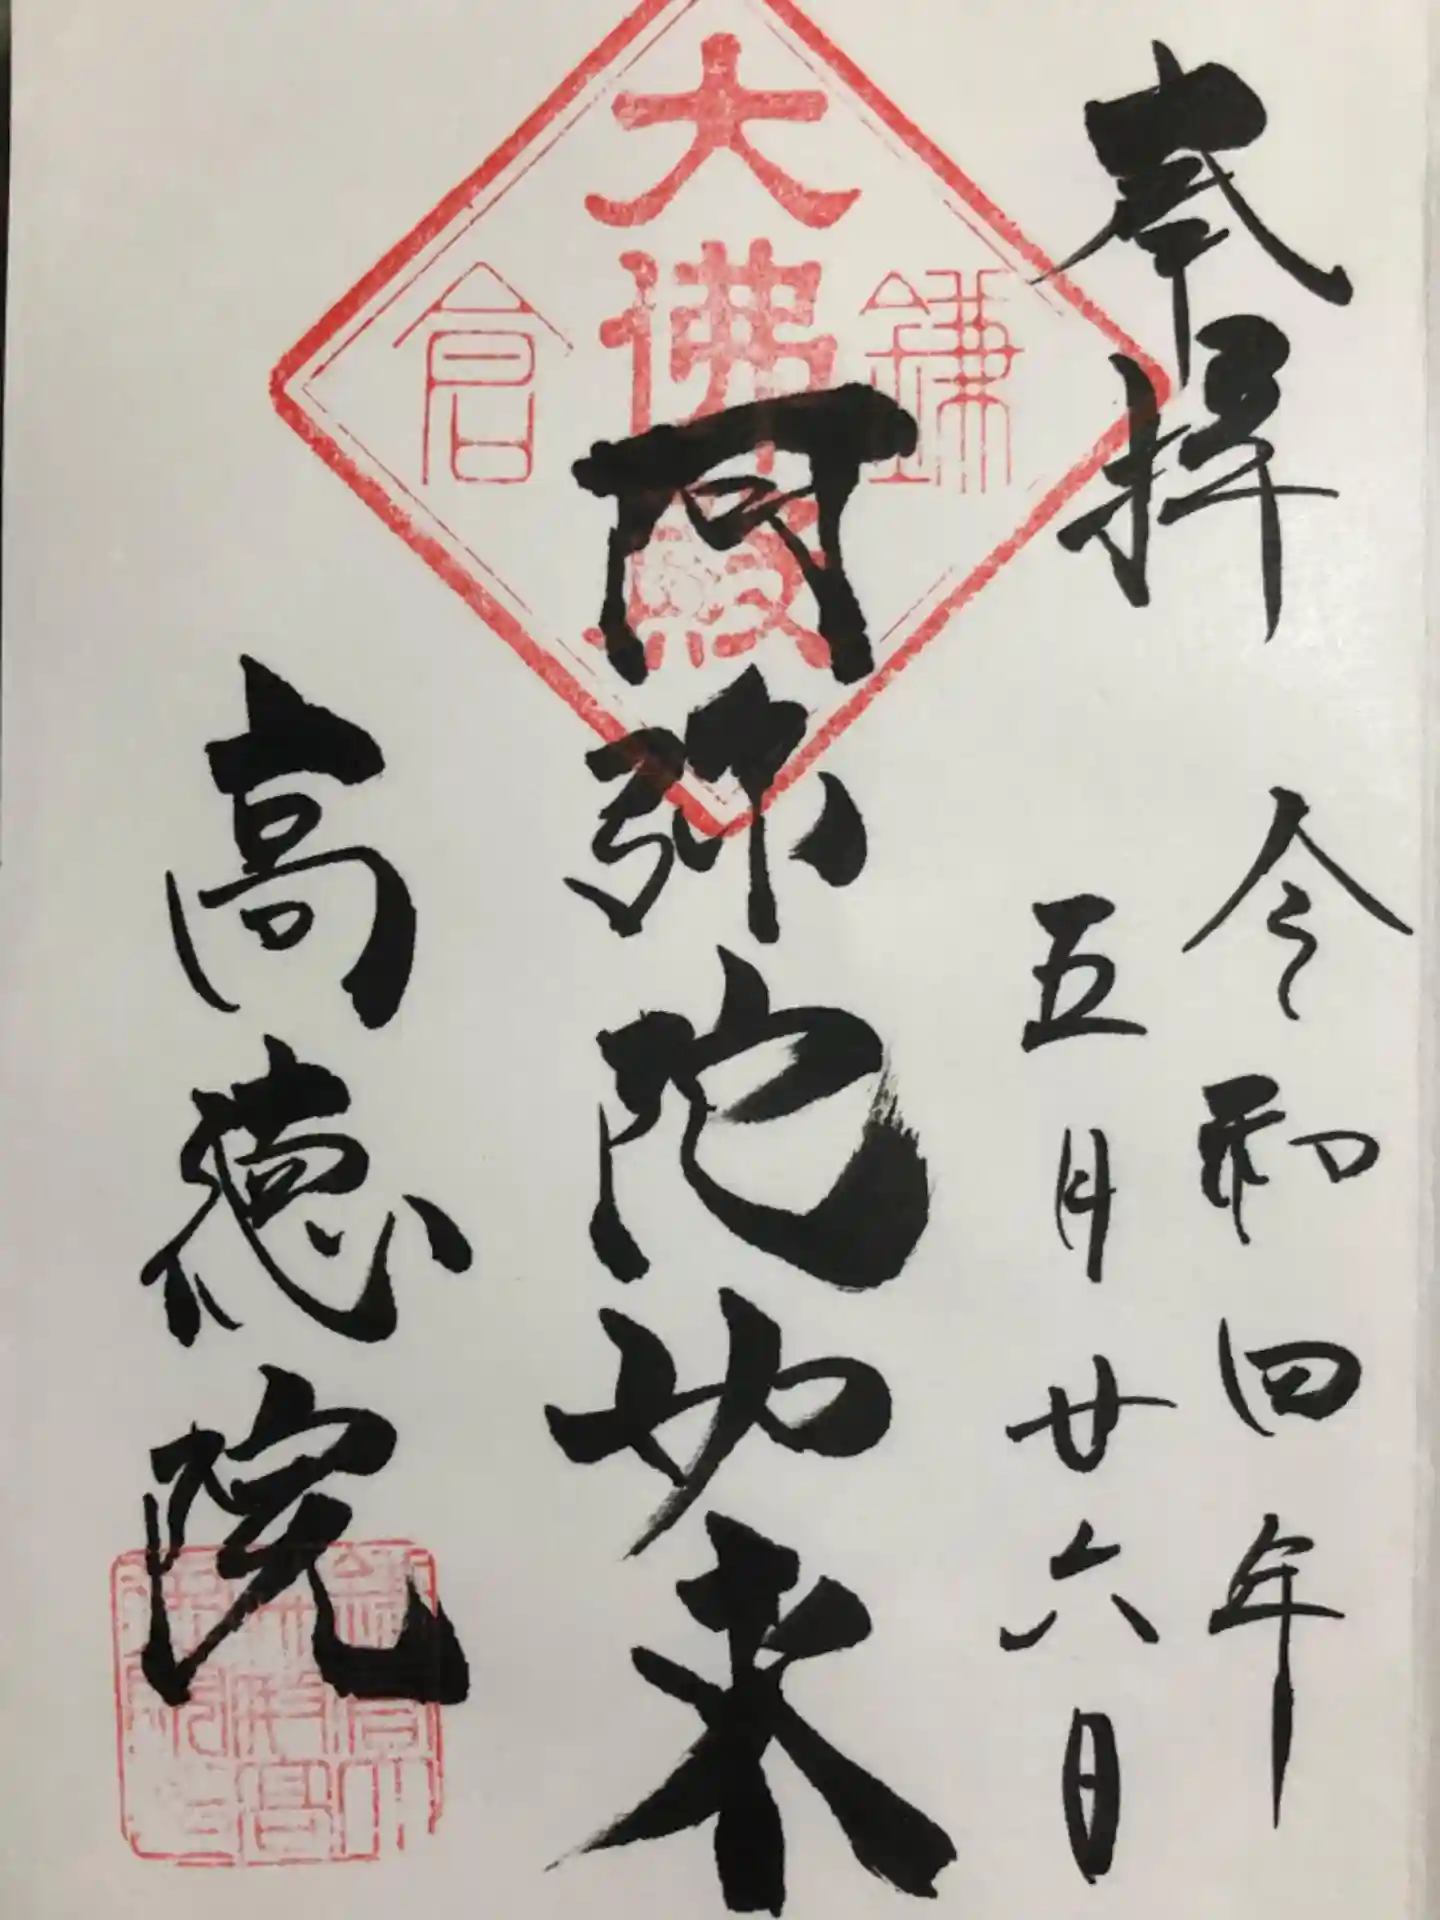 奉拝
令和四年
五月廿六日
大佛殿
鎌倉
阿弥陀如来
高徳院